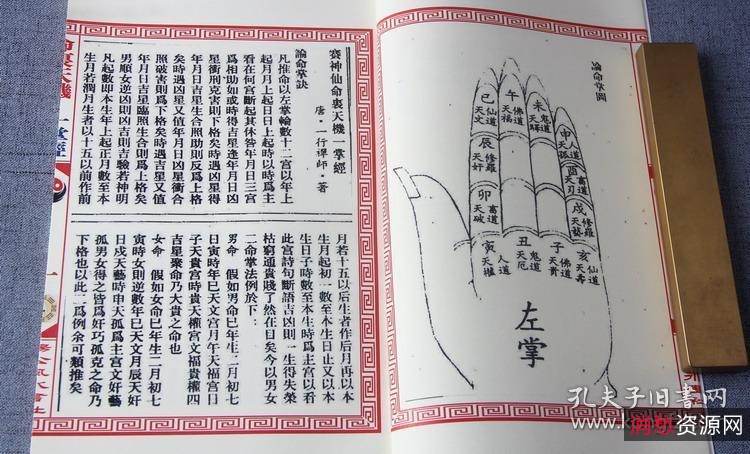 賽神仙命裏天機一掌經
唐·一行禪師 著
論命掌訣
凡推命以左掌輪數十二宮以年上
起月月上起日日上起時以時爲主
看在何宮斷起其休咎年月日三宮
爲相助如或時得吉星逢年月日凶
星衝刑克害則下格矣時遇凶星得
年月日吉星生合照助則反爲上格
矣時遇凶星又值年月日凶星衝合
照破害則爲下格矣時遇吉星又值
年月日吉星臨照生合則爲上格矣
男順女逆凶則凶吉則吉驗若神明
凡起數即本生年上起正月數至本
生月若潤月生者以十五以前作前
月若十五以后生者作后月再以本
生月起初一數至本生日止又以本
生日子時數至本生時爲主宮以看
此宮詩句斷語吉凶則一生得失榮
枯窮通貴賤了然在目矣今以男女
二命掌法例於下：
男命 假如男命巳年生二月初七
日寅時年巳天文宮月午天福宮日
子天貴宮時貴天權宮文福貴權四
吉星聚命乃大貴之命也
女命 假如女命巳年生二月初七
寅時女則逆數年巳天文月辰天奸
日戌天藝時申天孤爲主宮文奸藝
孤男女得之皆爲奸巧孤克之命乃
下格也以此二爲例余可類推矣
論命掌圖
巳 仙道 天文
午 佛道 天福
未 鬼道 天驛
申 人道 天孤
辰 修羅 天奸
酉 畜道 天刃
卯 畜道 天破
戌 修羅 天藝
寅 人道 天權
丑 鬼道 天厄
子 佛道 天貴
亥 仙道 天壽
左掌
孔夫子旧书网
资源网